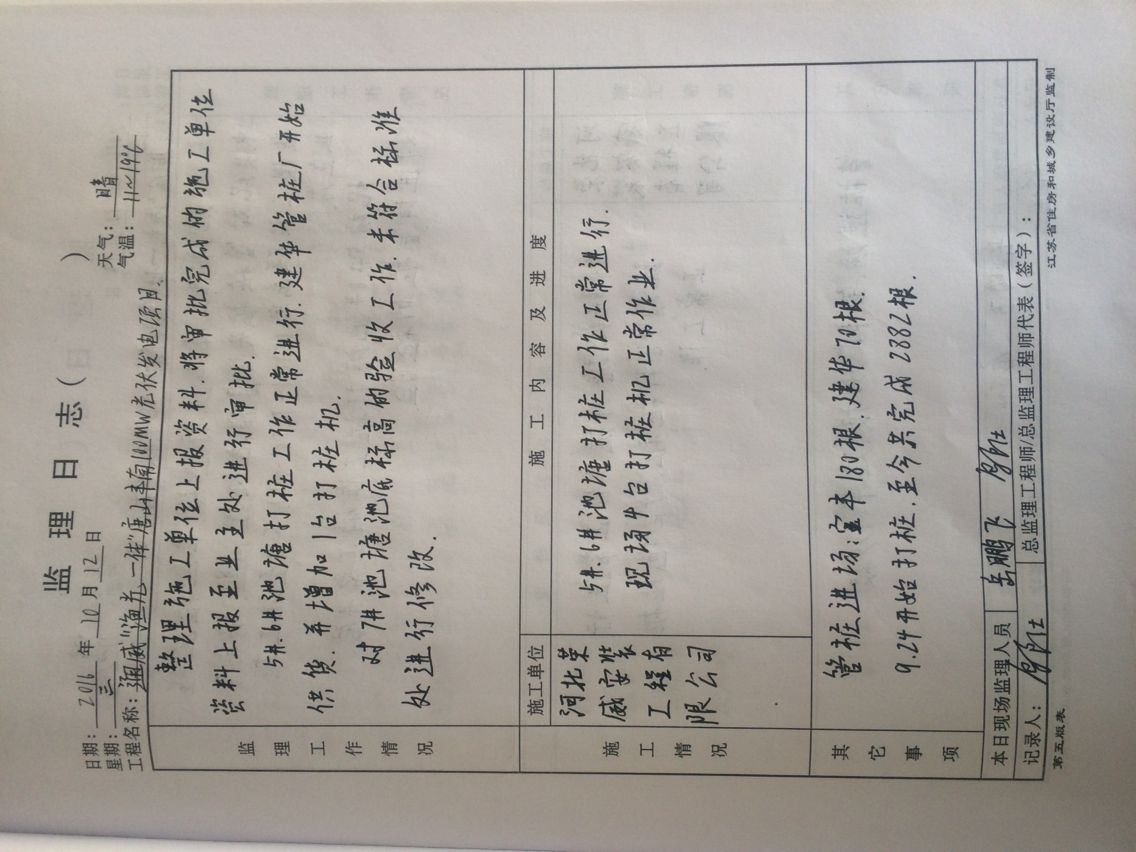 监理日志( )
日期: 2016 年 10 月 12 日
星期: 三
天气: 晴
气温: 11~19℃
工程名称: 通威"渔光一体"唐山丰南100MW光伏发电项目.
监理工作情况
整理施工单位上报资料.将审批完成的施工单位
资料上报至业主处进行审批.
5#.6#池塘打桩工作正常进行.建华管桩厂开始
供货.并增加1台打桩机.
对7#池塘池底标高的验收工作.未符合标准
处进行修改.
施工情况
施工单位
施工内容及进度
河北荣
威安装
工程有
限公司
5#.6#池塘打桩工作正常进行.
现场4台打桩机正常作业.
其它事项
管桩进场:宝丰180根.建华70根.
9.24开始打桩.至今共完成2382根.
本日现场监理人员 岳鹏飞
记录人:
总监理工程师/总监理工程师代表(签字):
第五版表
江苏省住房和城乡建设厅监制